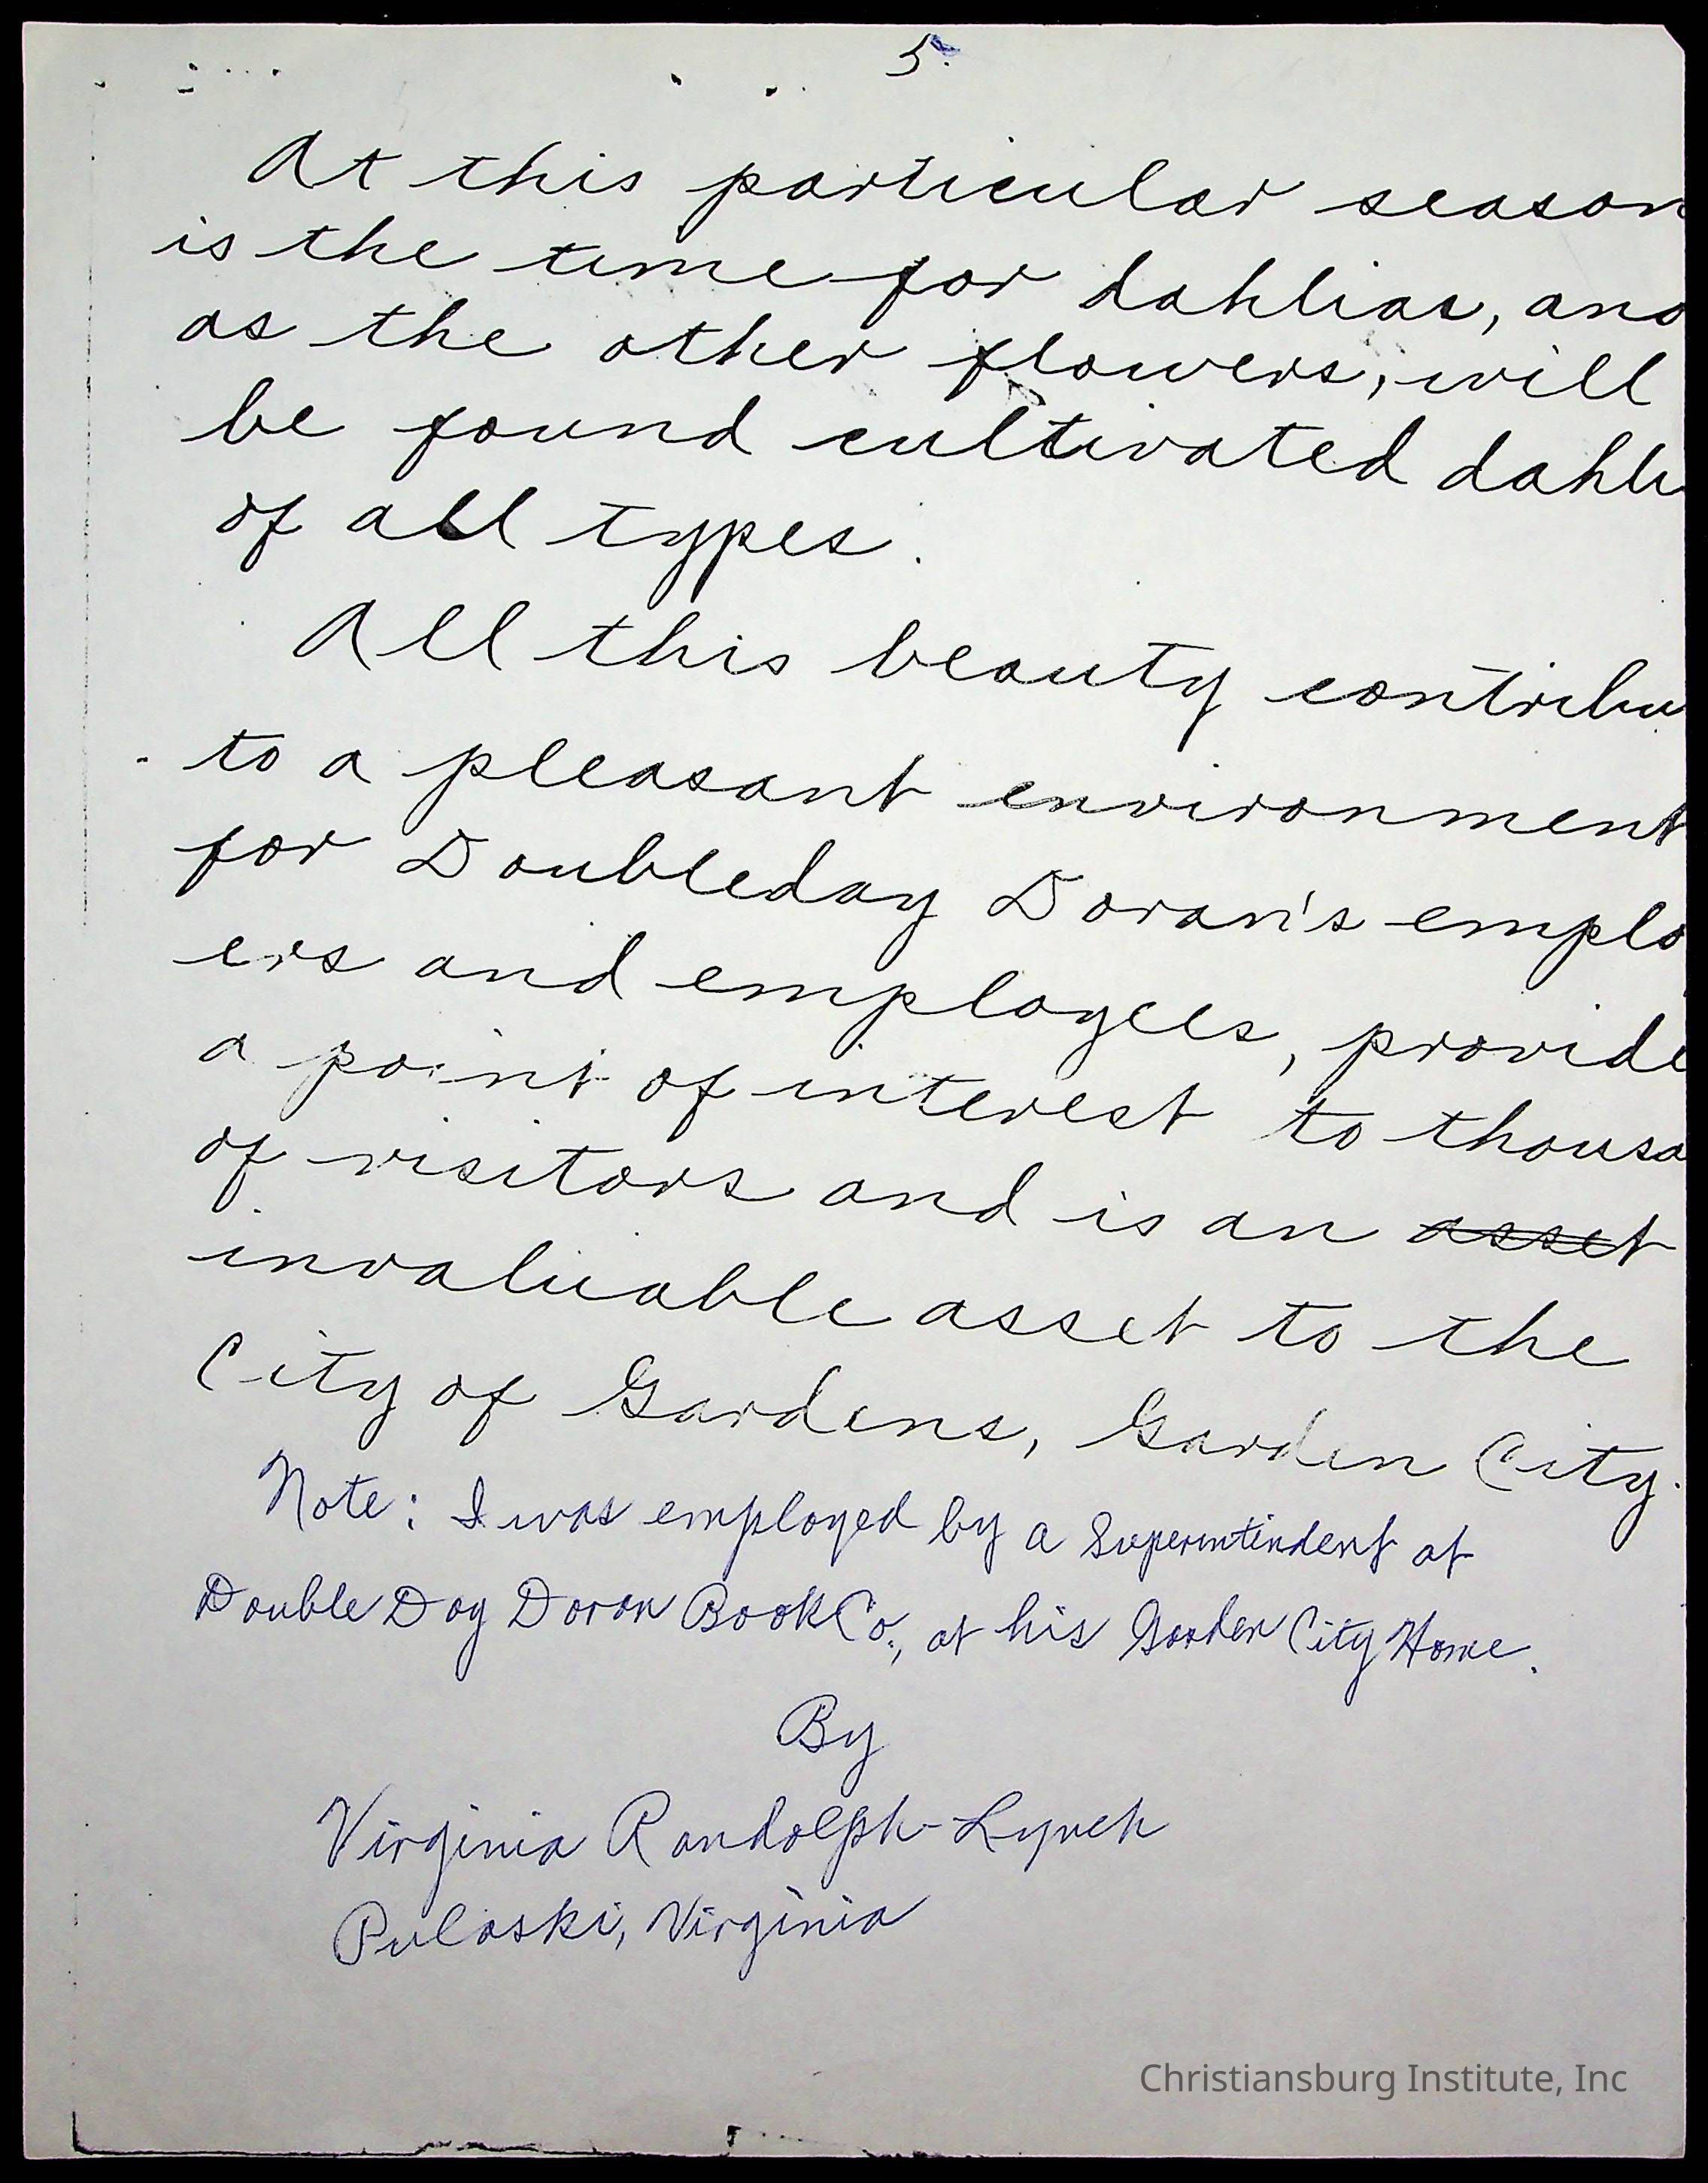 5.
At this particular season
is the time for dahlias, and
as the other flowers, will
be found cultivated dahli
of all types.
All this beauty contribu
to a pleasant environment
for Doubleday Doran's emplo
ers and employees, provide
a point of interest to thousa
of visitors and is an asset
invaluable asset to the
City of Gardens, Garden City.
Note: I was employed by a Superintindent at
Double Day Doran Book Co., at his Garden City Home.
By
Virginia Randolph-Lynch
Pulaski, Virginia
Christiansburg Institute, Inc